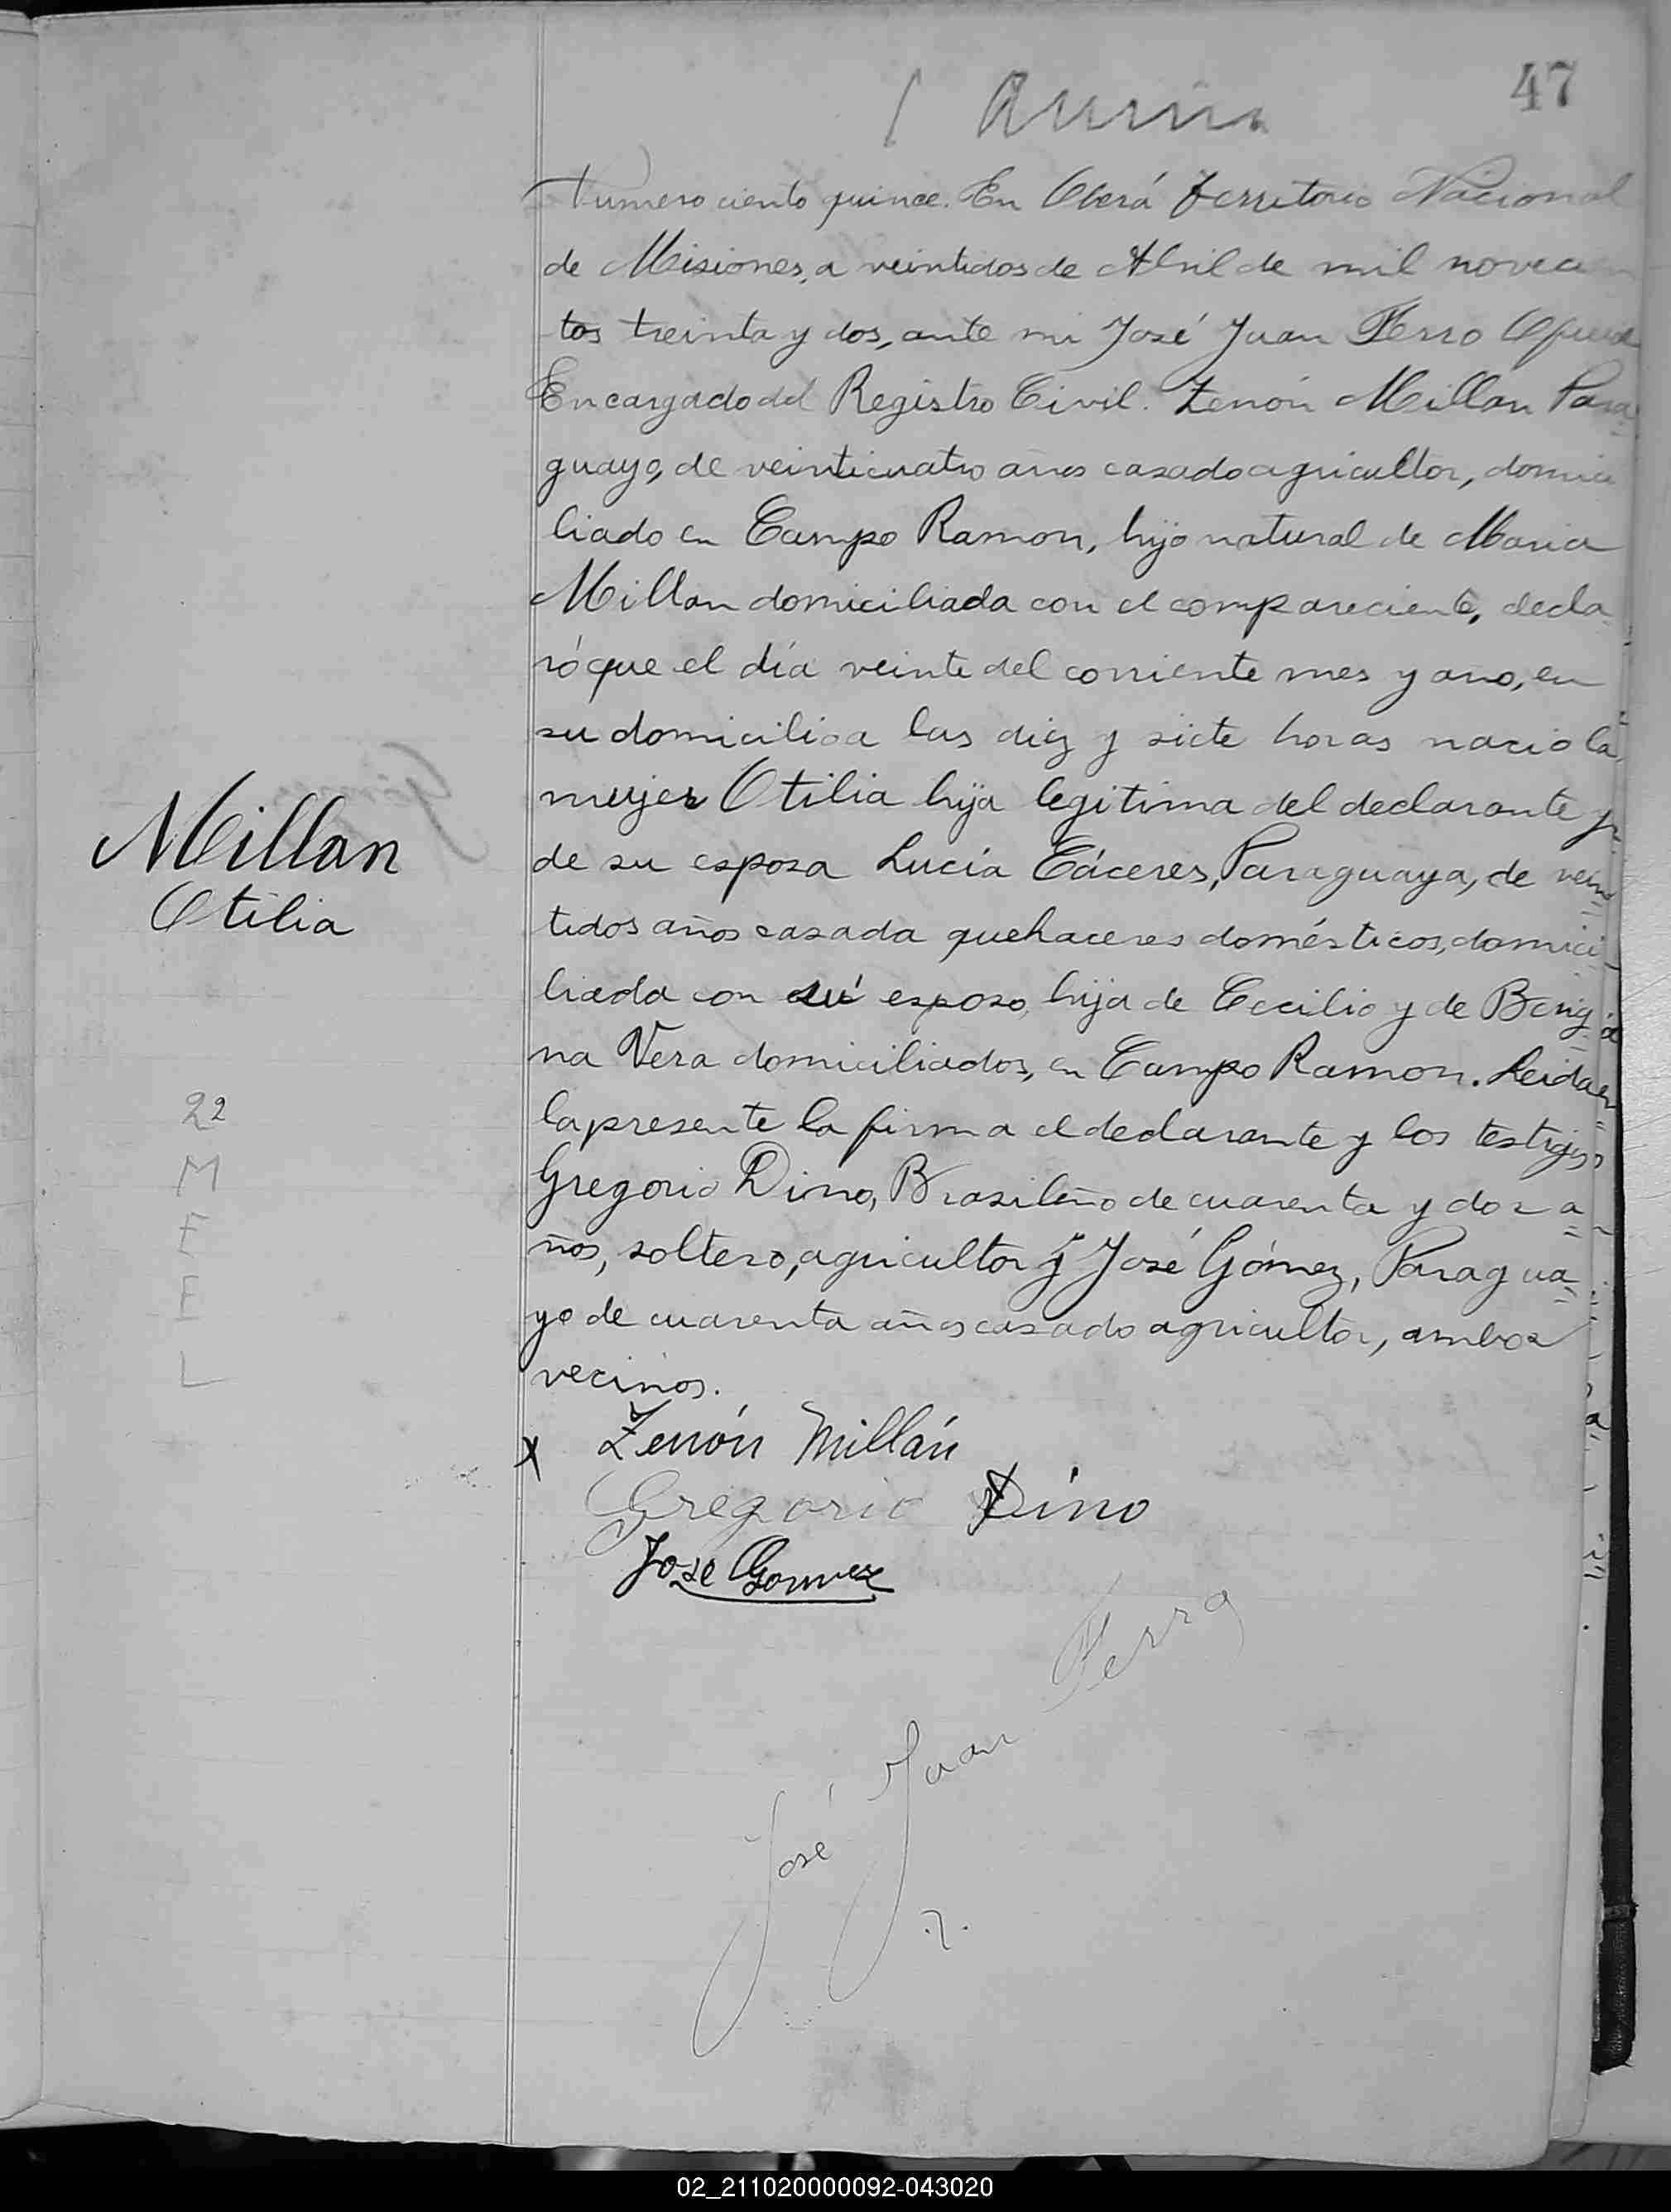 47
Numero ciento quince. En Oberá Territorio Nacional
de Misiones, a veintidos de Abril de mil novecien
tos treinta y dos, ante mi José Juan Ferro
Encargado del Registro Civil. Zenón Millan Para=
guayo, de veinticuatro años casado agricultor, domici
liado en Campo Ramon, hijo natural de Maria
Millan domiciliada con el compareciente, decla
ró que el día veinte del corriente mes y año, en
su domicilio a las diez y siete horas nacio la
mujer Otilia hija legitima del declarante y
de su esposa Lucía Cáceres, Paraguaya, de vein=
tidos años casada quehaceres domésticos, domici=
liada con su esposo, hija de Cecilio y de Benig=
na Vera domiciliados, en Campo Ramon. Leida
la presente la firma el declarante y los testigos
Gregorio Dino, Brasileño de cuarenta y dos a=
ños, soltero, agricultor y José Gómez, Paragua=
yo de cuarenta años casado agricultor, ambos
vecinos.
Millan
Otilia
22
M
F
E
L
x Zenón Millán
Gregorio Dino
Jose Gomez
José Juan Ferro
02_211020000092-043020